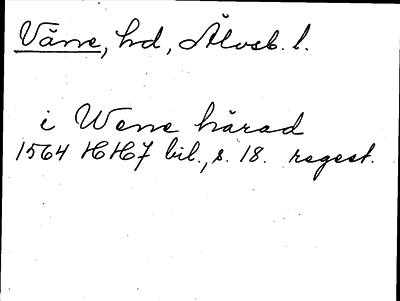 Väne, hd, Älvsb. l.
i Wene härad
1564 HH7 bil., s. 18. regest.